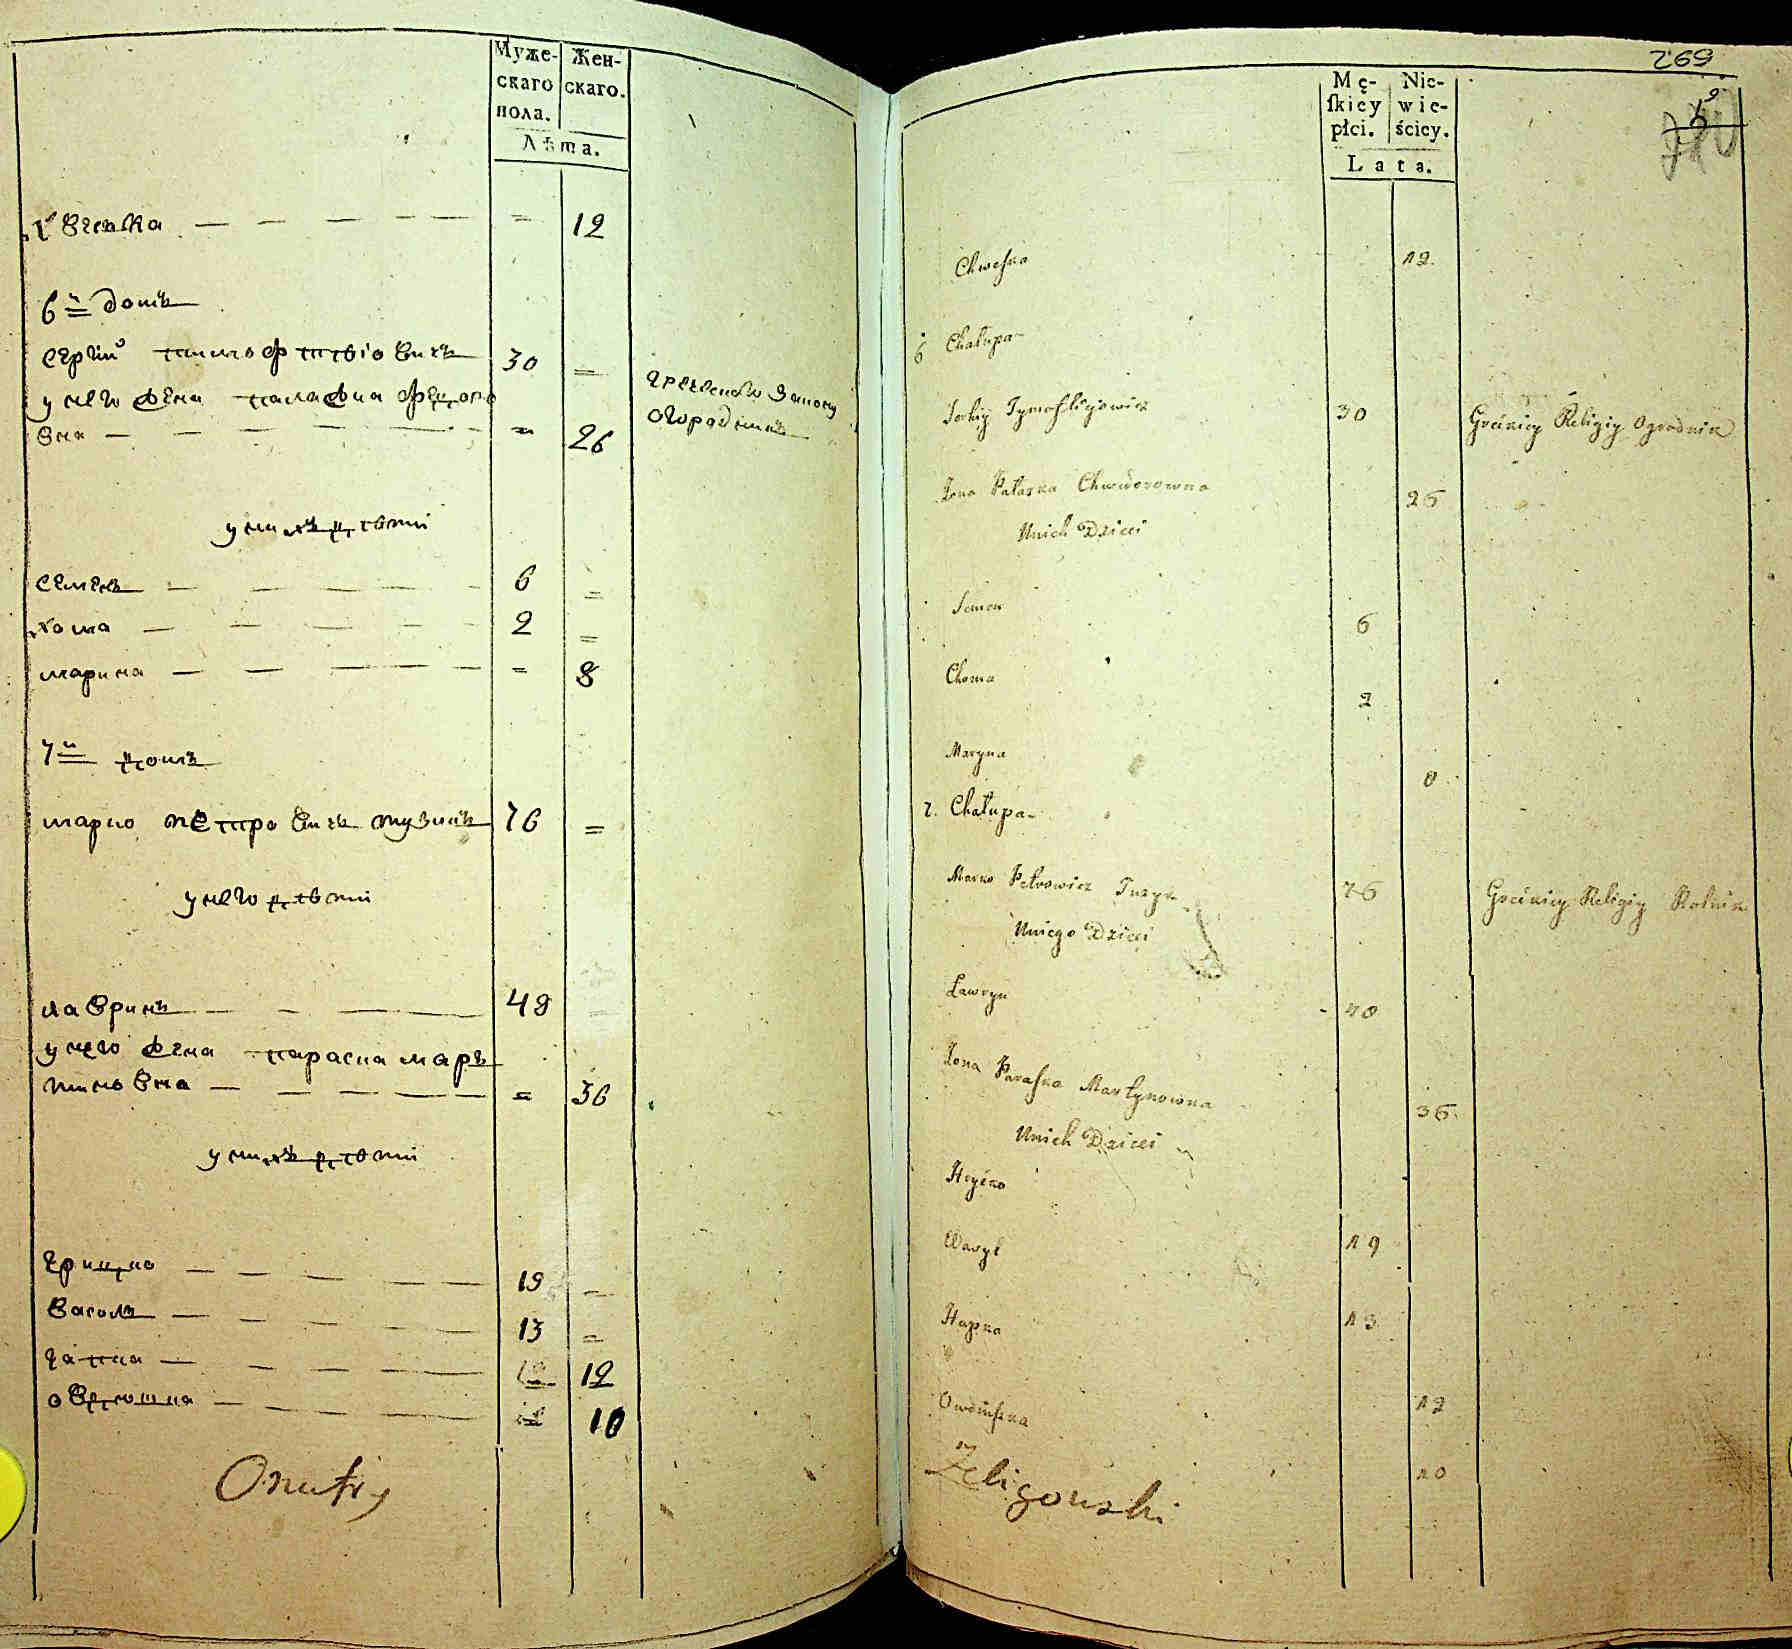 Муже-
скаго
пола.
Жен-
скаго.
Лѣта.
Хвеська — — — — = 12
6й домъ
Сергій тимофтѣіовичъ 30 =
у него жена палажка федоро
вна — — — — = 26
греческого закону
огородникъ
у нихъ дѣти
семенъ — — — — 6 =
хома — — — — 2 =
марина — — — — = 8
7й домъ
марко петровичъ тузикъ 76 =
у него дѣти
лавринъ — — — 48 =
у него жена параска мартъ
тиновна — — — — = 36
у нихъ дѣти
грицко — — — — 19 =
василь — — — — 13 =
гапка — — — — 12
овдюшка — — — 10
Onufry
269
Mę-
ſkiey
płci.
Nie-
wie-
ściey.
Lata.
Chweſka 12
6 Chałupa
Serhiy Tymofiijowicz 30 Gréckiey Religiy Ogrodnik
Żona Pałaszka Chwedorowna 26
Unich Dzieci
Semen 6
Choma 2
Maryna 8
7. Chałupa
Marko Petrowicz Tuzyk 76 Gréckiey Religiy Rolnik
Uniego Dzieci
Ławryn 48
Żona Paraſka Martynowna 36
Unich Dzieci
Hryćko
Wasyl 19
Hapka 13
Owdiuſzka 12
10
Żeligowski